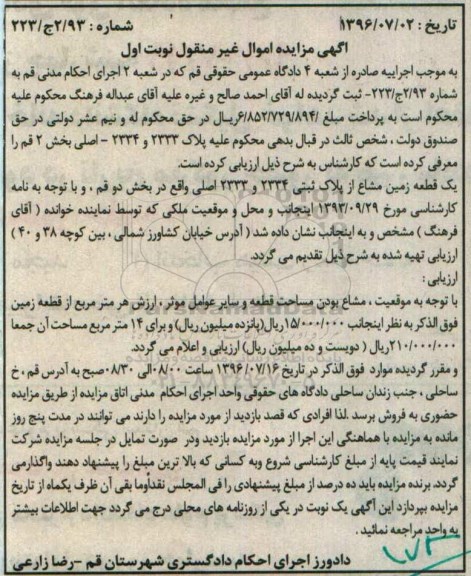 تاریخ : ۱۳۹۶/۰۷/۰۲ شماره : ۲/۹۳ج/۲۲۳
اگهی مزایده اموال غیر منقول نوبت اول
به موجب اجراییه صادره از شعبه ۴ دادگاه عمومی حقوقی قم که در شعبه ۲ اجرای احکام مدنی قم به
شماره ۲/۹۳ج/۲۲۳- ثبت گردیده له آقای احمد صالح و غیره علیه آقای عبداله فرهنگ محکوم علیه
محکوم است به پرداخت مبلغ /۶/۸۵۲/۷۲۹/۸۹۴ریال در حق محکوم له و نیم عشر دولتی در حق
صندوق دولت ، شخص ثالث در قبال بدهی محکوم علیه پلاک ۲۳۳۳ و ۲۳۳۴ - اصلی بخش ۲ قم را
معرفی کرده است که کارشناس به شرح ذیل ارزیابی کرده است.
یک قطعه زمین مشاع از پلاک ثبتی ۲۳۳۴ و ۲۳۳۳ اصلی واقع در بخش دو قم ، و با توجه به نامه
کارشناسی مورخ ۱۳۹۳/۰۹/۲۹ اینجانب و محل و موقعیت ملکی که توسط نماینده خوانده ( آقای
فرهنگ ) مشخص و به اینجانب نشان داده شد ( آدرس خیابان کشاورز شمالی ، بین کوچه ۳۸ و ۴۰ )
ارزیابی تهیه شده به شرح ذیل تقدیم می گردد.
ارزیابی :
با توجه به موقعیت ، مشاع بودن مساحت قطعه و سایر عوامل موثر ، ارزش هر متر مربع از قطعه زمین
فوق الذکر به نظر اینجانب ۱۵/۰۰۰/۰۰۰ریال(پانزده میلیون ریال) و برای ۱۴ متر مربع مساحت آن جمعا
۲۱۰/۰۰۰/۰۰۰ریال ( دویست و ده میلیون ریال) ارزیابی و اعلام می گردد.
و مقرر گردیده موارد فوق الذکر در تاریخ ۱۳۹۶/۰۷/۱۶ ساعت ۰۸/۰۰الی ۰۸/۳۰صبح به آدرس قم ، خ
ساحلی ، جنب زندان ساحلی دادگاه های حقوقی واحد اجرای احکام مدنی اتاق مزایده از طریق مزایده
حضوری به فروش برسد .لذا افرادی که قصد بازدید از مورد مزایده را دارند می توانند در مدت پنج روز
مانده به مزایده با هماهنگی این اجرا از مورد مزایده بازدید ودر صورت تمایل در جلسه مزایده شرکت
نمایند قیمت پایه از مبلغ کارشناسی شروع وبه کسانی که بالا ترین مبلغ را پیشنهاد دهند واگذارمی
گردد. برنده مزایده باید ده درصد از مبلغ پیشنهادی را فی المجلس نقداًوما بقی آن ظرف یکماه از تاریخ
مزایده بپردازد این آگهی یک نوبت در یکی از روزنامه های محلی درج می گردد جهت اطلاعات بیشتر
به واحد مراجعه نمائید .
دادورز اجرای احکام دادگستری شهرستان قم -رضا زارعی